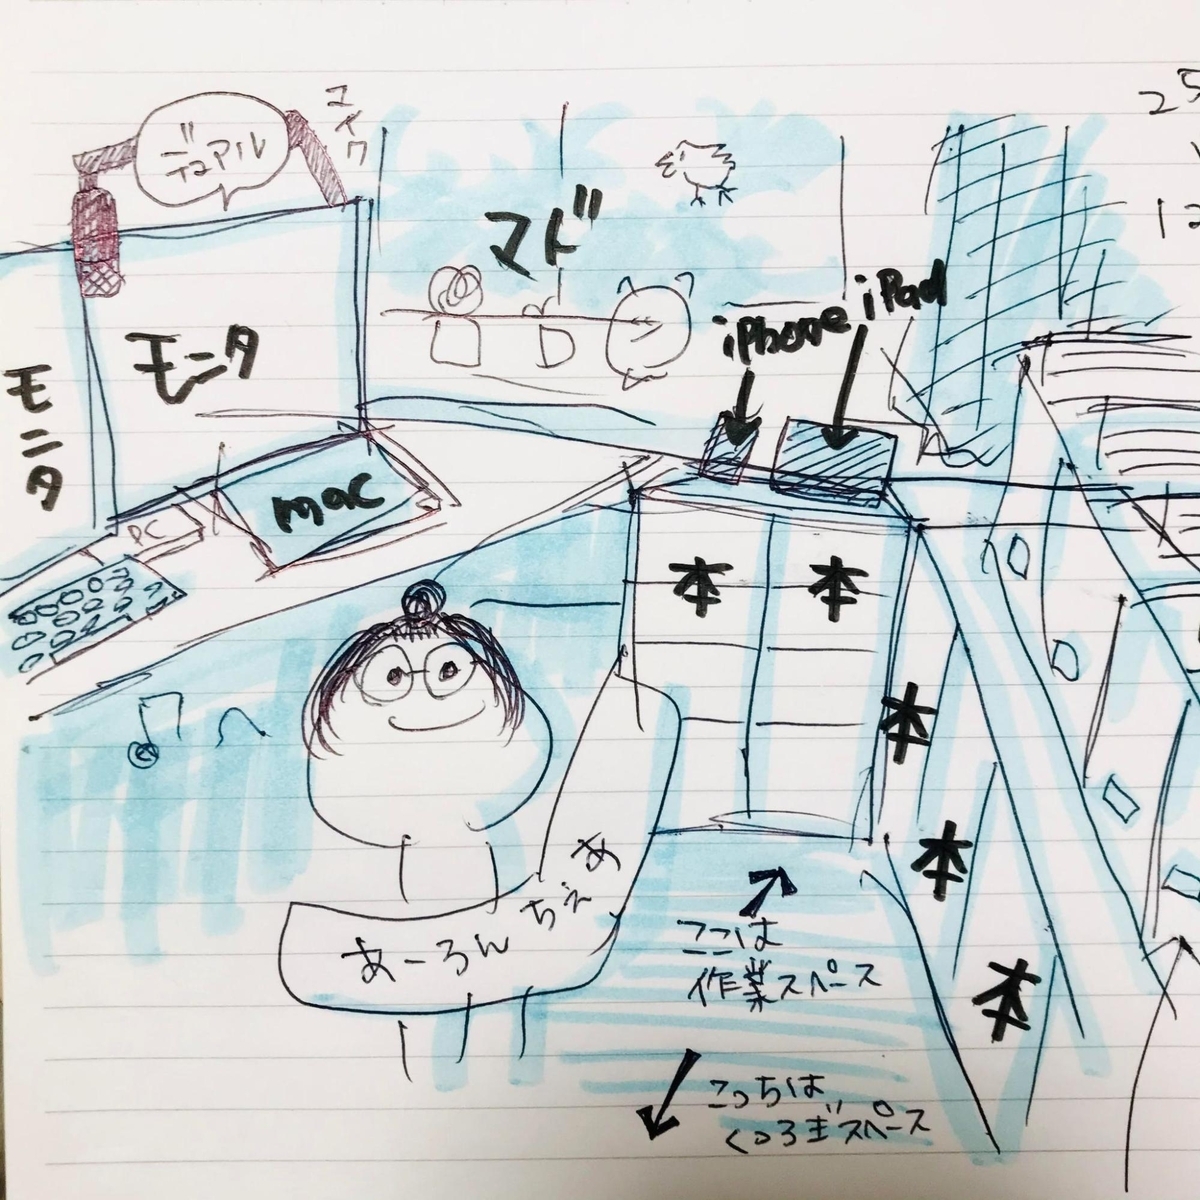 マイク
デュアル
マド
モニタ
モニタ
iPhone
iPad
mac
PC
本
本
本
本
本
あーろんちぇあ
ここは
作業スペース
こっちは
くつろぎスペース